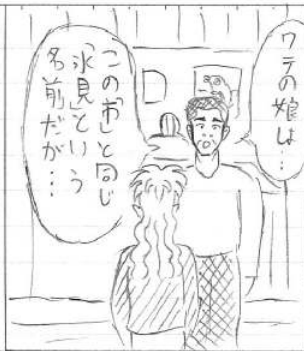 ワテの娘は…
この「市」と同じ
「氷見」という
名前だが…